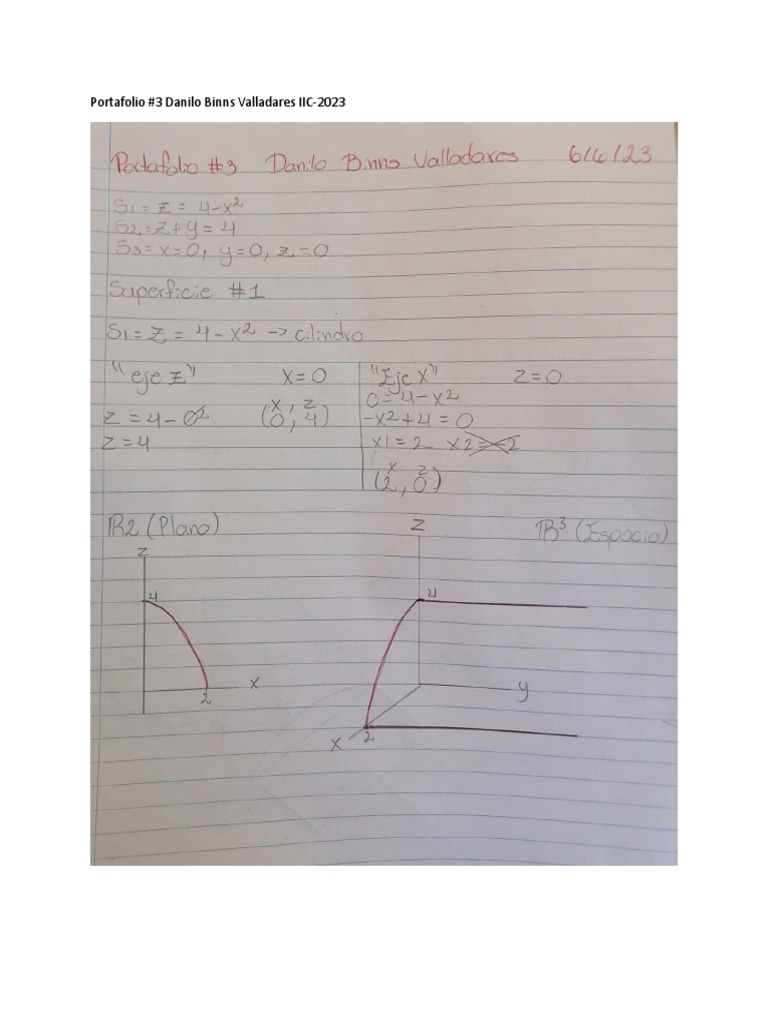 Portafolio #3 Danilo Binns Valladares IIC-2023
Portafolio #3 Danilo Binns Valladares 6/6/23
S1 = z = 4-x²
S2 = z+y = 4
S3 = x=0, y=0, z=0
Superficie #1
S1 = z = 4-x² -> cilindro
"eje z" x=0
x, z
z = 4-0² (0, 4)
z=4
"Eje x" z=0
0=4-x²
-x²+4=0
x1=2 x2=-2
x z
(2, 0)
R2 (Plano)
z
4
x
2
R³ (Espacio)
z
4
y
x
2